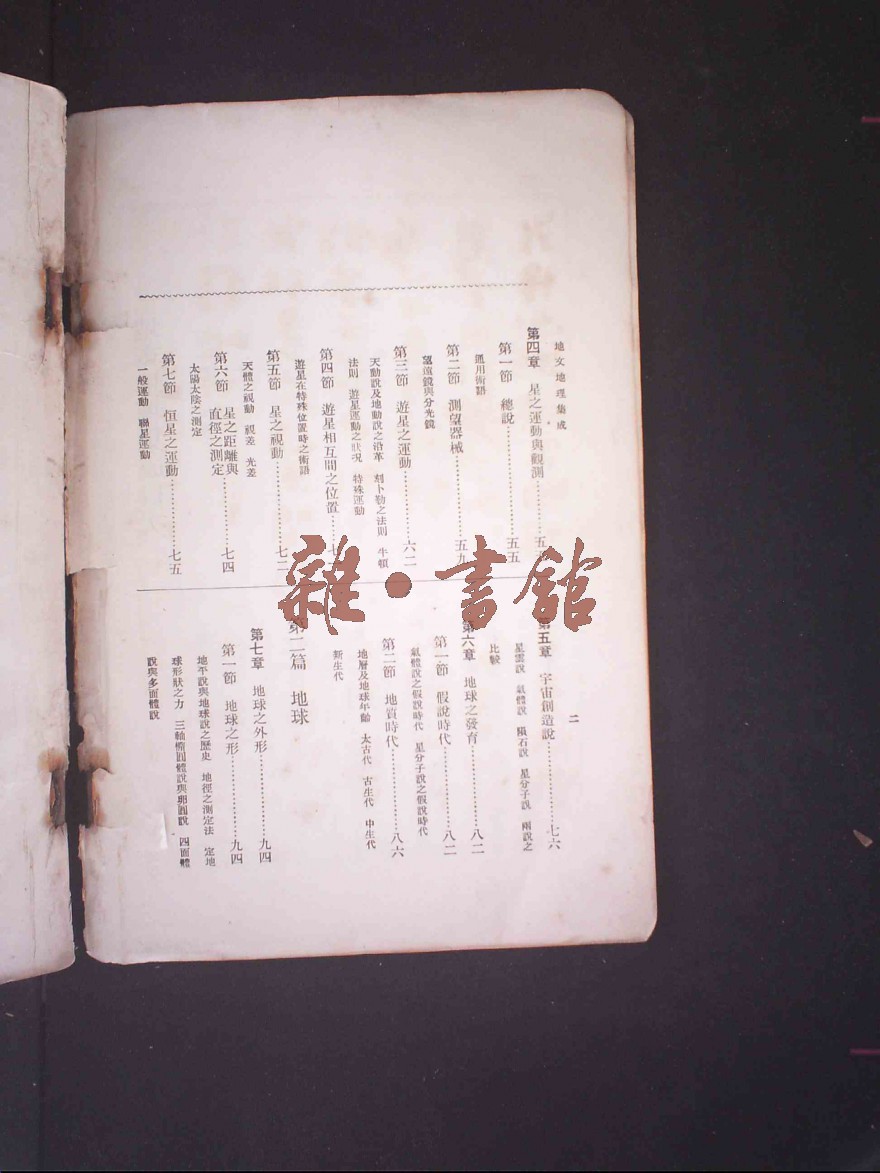 地文地理集成
第四章 星之運動與觀測………五
第一節 總說………五五
通用術語
第二節 測望器械………五九
望遠鏡與分光鏡
第三節 遊星之運動………六二
天動說及地動說之沿革 刻卜勒之法則 牛頓
法則 遊星運動之狀況 特殊運動
第四節 遊星相互間之位置………七
遊星在特殊位置時之術語
第五節 星之視動………七二
天體之視動 視差 光差
第六節 星之距離與直徑之測定………七四
太陽太陰之測定
第七節 恒星之運動………七五
一般運動 聯星運動
二
第五章 宇宙創造說………七六
星雲說 氣體說 隕石說 星分子說 兩說之
比較
第六章 地球之發育………八二
第一節 假說時代………八二
氣體說之假說時代 星分子說之假說時代
第二節 地質時代………八六
地層及地球年齡 太古代 古生代 中生代
新生代
第二篇 地球
第七章 地球之外形………九四
第一節 地球之形………九四
地平說與地球說之歷史 地徑之測定法 定地
球形狀之力 三軸橢圓體說與卵圓說 四面體
說與多面體說
雜·書館